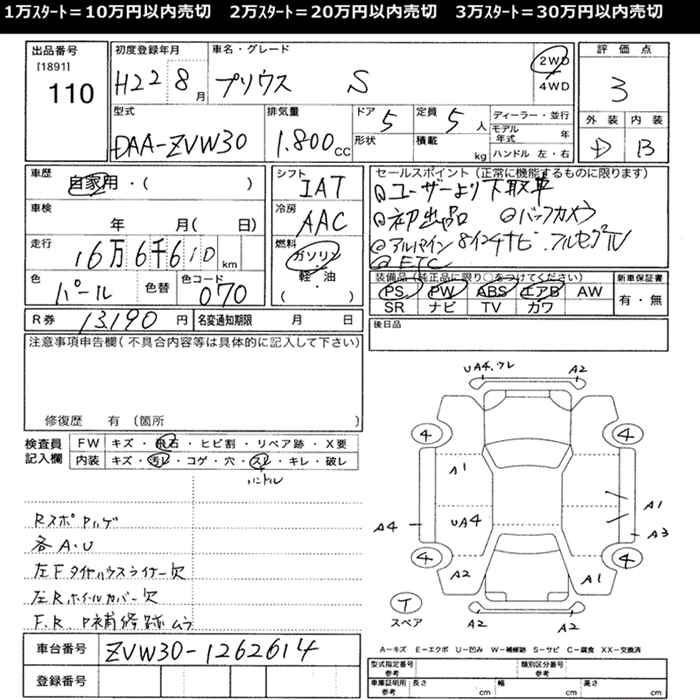 1万ｽﾀｰﾄ＝10万円以内売切　2万ｽﾀｰﾄ＝20万円以内売切　3万ｽﾀｰﾄ＝30万円以内売切
出品番号　初度登録年月　車名・グレード　2WD　評価点
[1891]　H22　8月　プリウス　S　4WD　3
110
型式　排気量　ドア　5　定員　5人　ディーラー・並行　外装　内装
DAA-ZVW30　1.800cc　形状　積載　kg　モデル年式　年　D　B
ハンドル　左・右
車歴　シフト　セールスポイント（正常に機能するものに限ります）
自家用・（　）　IAT　◎ユーザーより下取車
車検　冷房　◎初出品　◎バックカメラ
年　月（　日）　AAC　◎アルパイン8インチナビ．フルセグTV
走行　燃料　◎ETC
16万6千610km　ガソリン
軽・油
（　）
色　パール　色替　色コード　070
装備品（純正品に限り○をつけてください）　新車保証書
PS　PW　ABS　エアB　AW　有・無
SR　ナビ　TV　カワ
R券　13,190円　名変通知期限　月　日　後日品
注意事項申告欄（不具合内容等は具体的に記入して下さい）
修復歴　有（箇所　）
検査員記入欄　FW　キズ・飛石・ヒビ割・リペア跡・X要
内装　キズ・汚レ・コゲ・穴・スレ・キレ・破レ
ハンドル
各A・U
左Fタイヤハウスライナー欠
左Rホイールカバー欠
F.R.P補修跡ムラ
UA4.ワレ　A2
4　4
A1　A1
A4　UA4　A3
4　4
A2　A1
T　スペア　A2　A2
A－キズ　E－エクボ　U－凹み　W－補修跡　S－サビ　C－腐食　XX－交換済
車台番号　ZVW30-1262614
登録番号
型式指定番号　参考　類別区分番号　参考
車庫証明用　参考　長さ　cm　幅　cm　高さ　cm